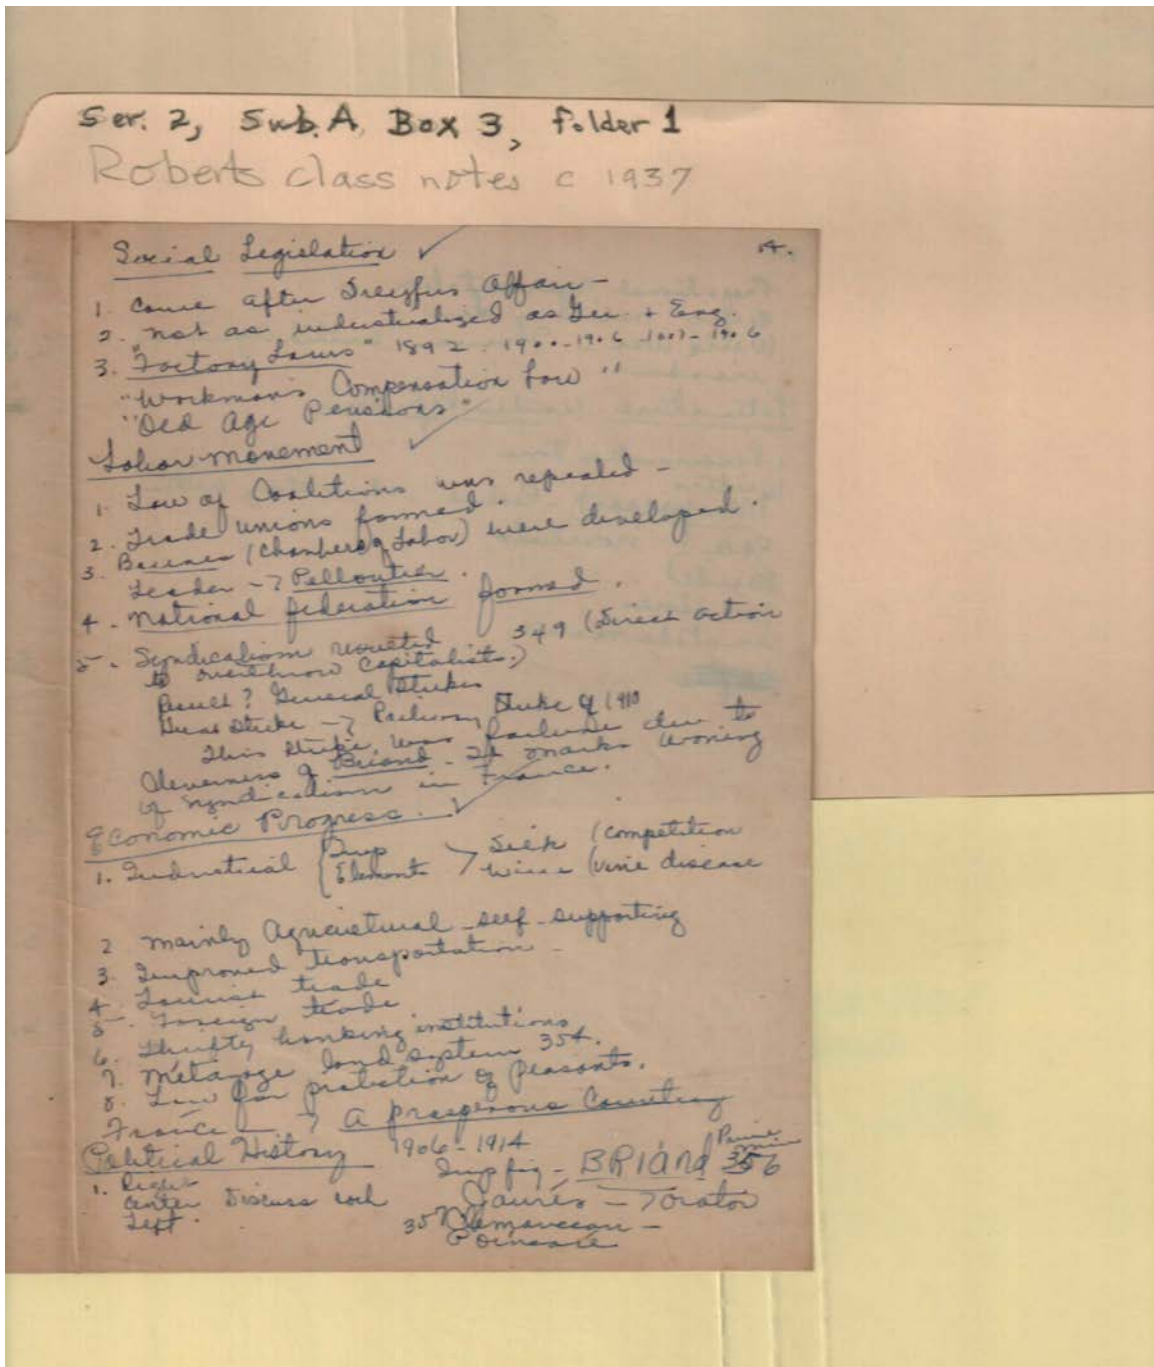 Ser. 2, Sub. A, Box 3, folder 1
Roberts class notes c 1937
4.
Social Legislation ✓
1. Came after Dreyfus Affair -
2. not as industrialized as Ger. + Eng.
3. "Factory Laws" 1892. 1900-1906
"Workman's Compensation Law"
"Old Age Pensions"
Labor movement ✓
1. Law of Coalitions was repealed -
2. Trade unions formed.
3. Bourses (Chambers of Labor) were developed.
Leader -> Pelloutier.
4. National federation formed.
5. Syndicalism resorted 349 (Direct action
to overthrow Capitalists.)
Result? General Strikes
Great Strike -> Railway Strike of 1910
This strike was failure due to
cleverness of Briand. It marks waning
of syndicalism in France.
Economic Progress. ✓
1. Industrial { Imp Elements > Silk (competition
Wine (vine disease
2 mainly Agricultural - self-supporting
3. Improved transportation -
4. Tourist trade
5. Foreign trade
6. Thrifty banking institutions
7. Métayage land system 354.
8. Law for protection of peasants.
France -> A prosperous Country
Political History 1906-1914
Imp fig - BRIAND Prime Min 356
1. Right
Center Discuss each
Left.
Jaurès -> Orator
357 Clemenceau -
Poincaré